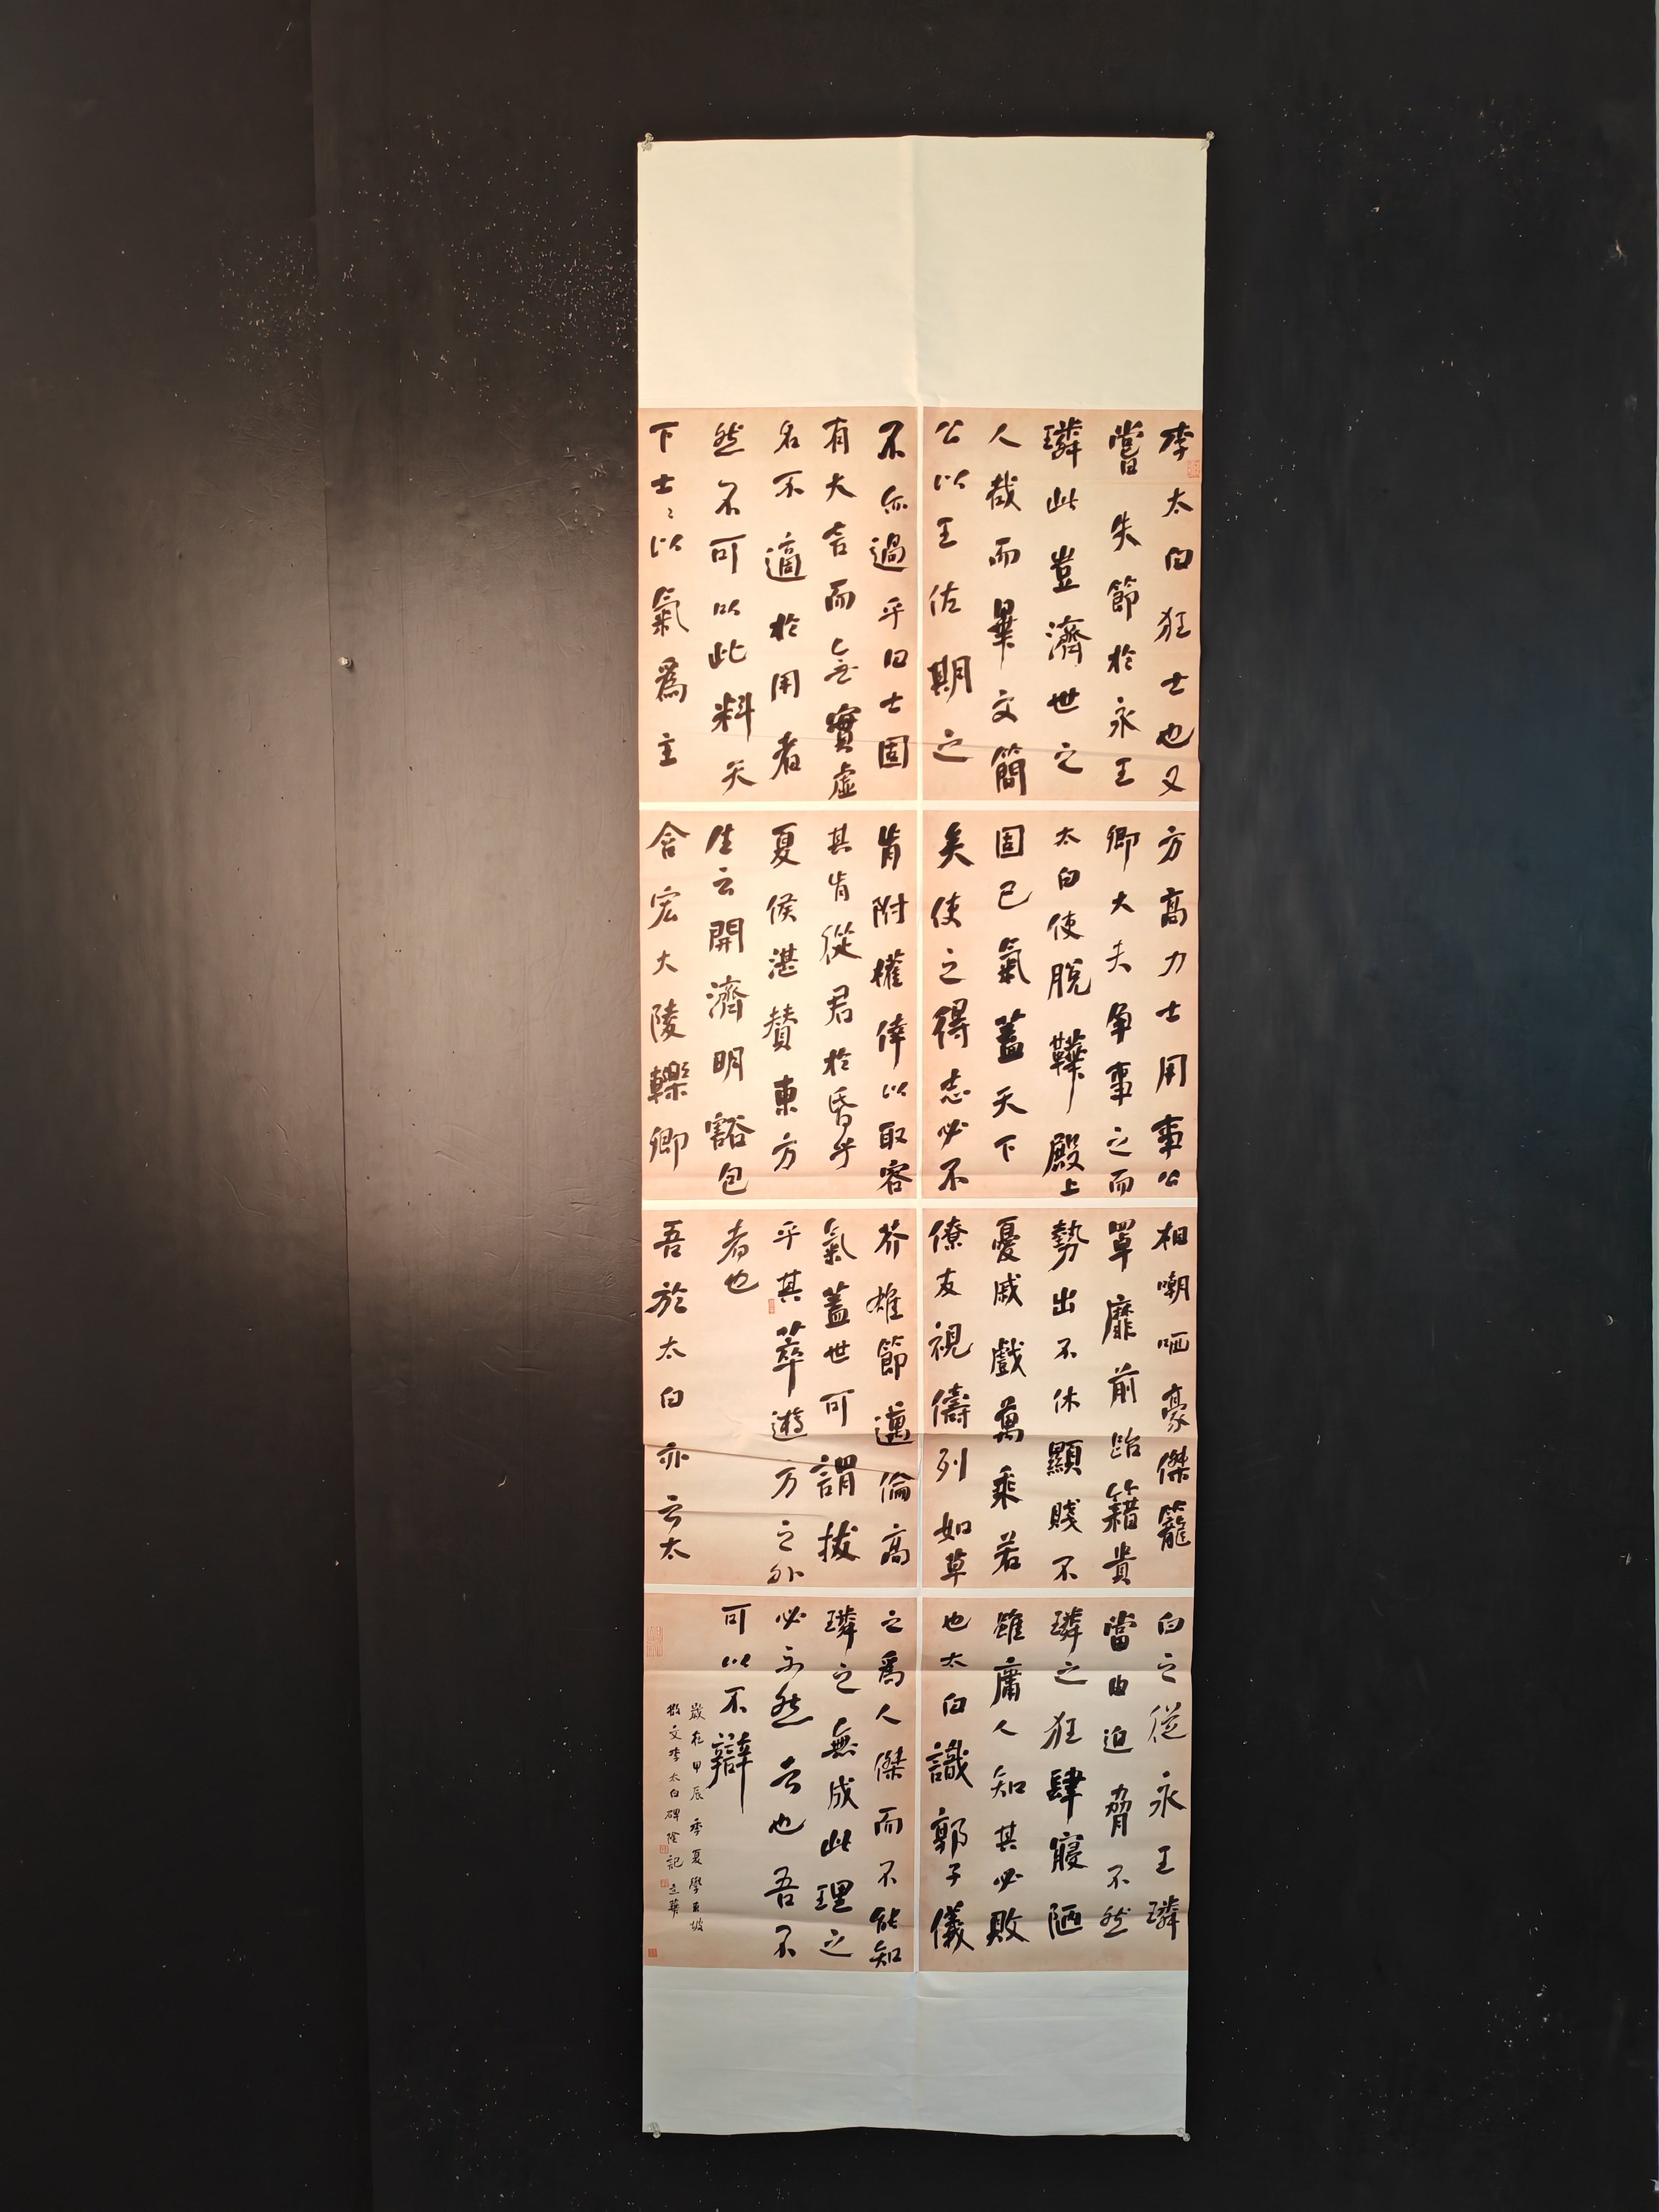 李太白狂士也又
嘗失節於永王
璘此豈濟世之
人哉而畢文簡
公以王佐期之
不亦過乎曰士固
有大言而無實虛
名不適於用者
然不可以此料天
下士〻以氣爲主
方高力士用事公
卿大夫争事之而
太白使脫鞾殿上
固已氣蓋天下
矣使之得志必不
肯附權倖以取容
其肯從君於昏乎
夏侯湛贊東方
生云開濟明豁包
含宏大陵轢卿
相嘲哂豪傑籠
罩靡前跆籍貴
勢出不休顯賤不
憂戚戲萬乘若
僚友視儔列如草
芥雄節邁倫高
氣蓋世可謂拔
乎其萃遊方之外
者也
吾於太白亦云太
白之從永王璘
當由迫脅不然
璘之狂肆寢陋
雖庸人知其必敗
也太白識郭子儀
之爲人傑而不能知
璘之無成此理之
必不然者也吾不
可以不辯
歲在甲辰季夏學東坡
撰文李太白碑陰記 立華